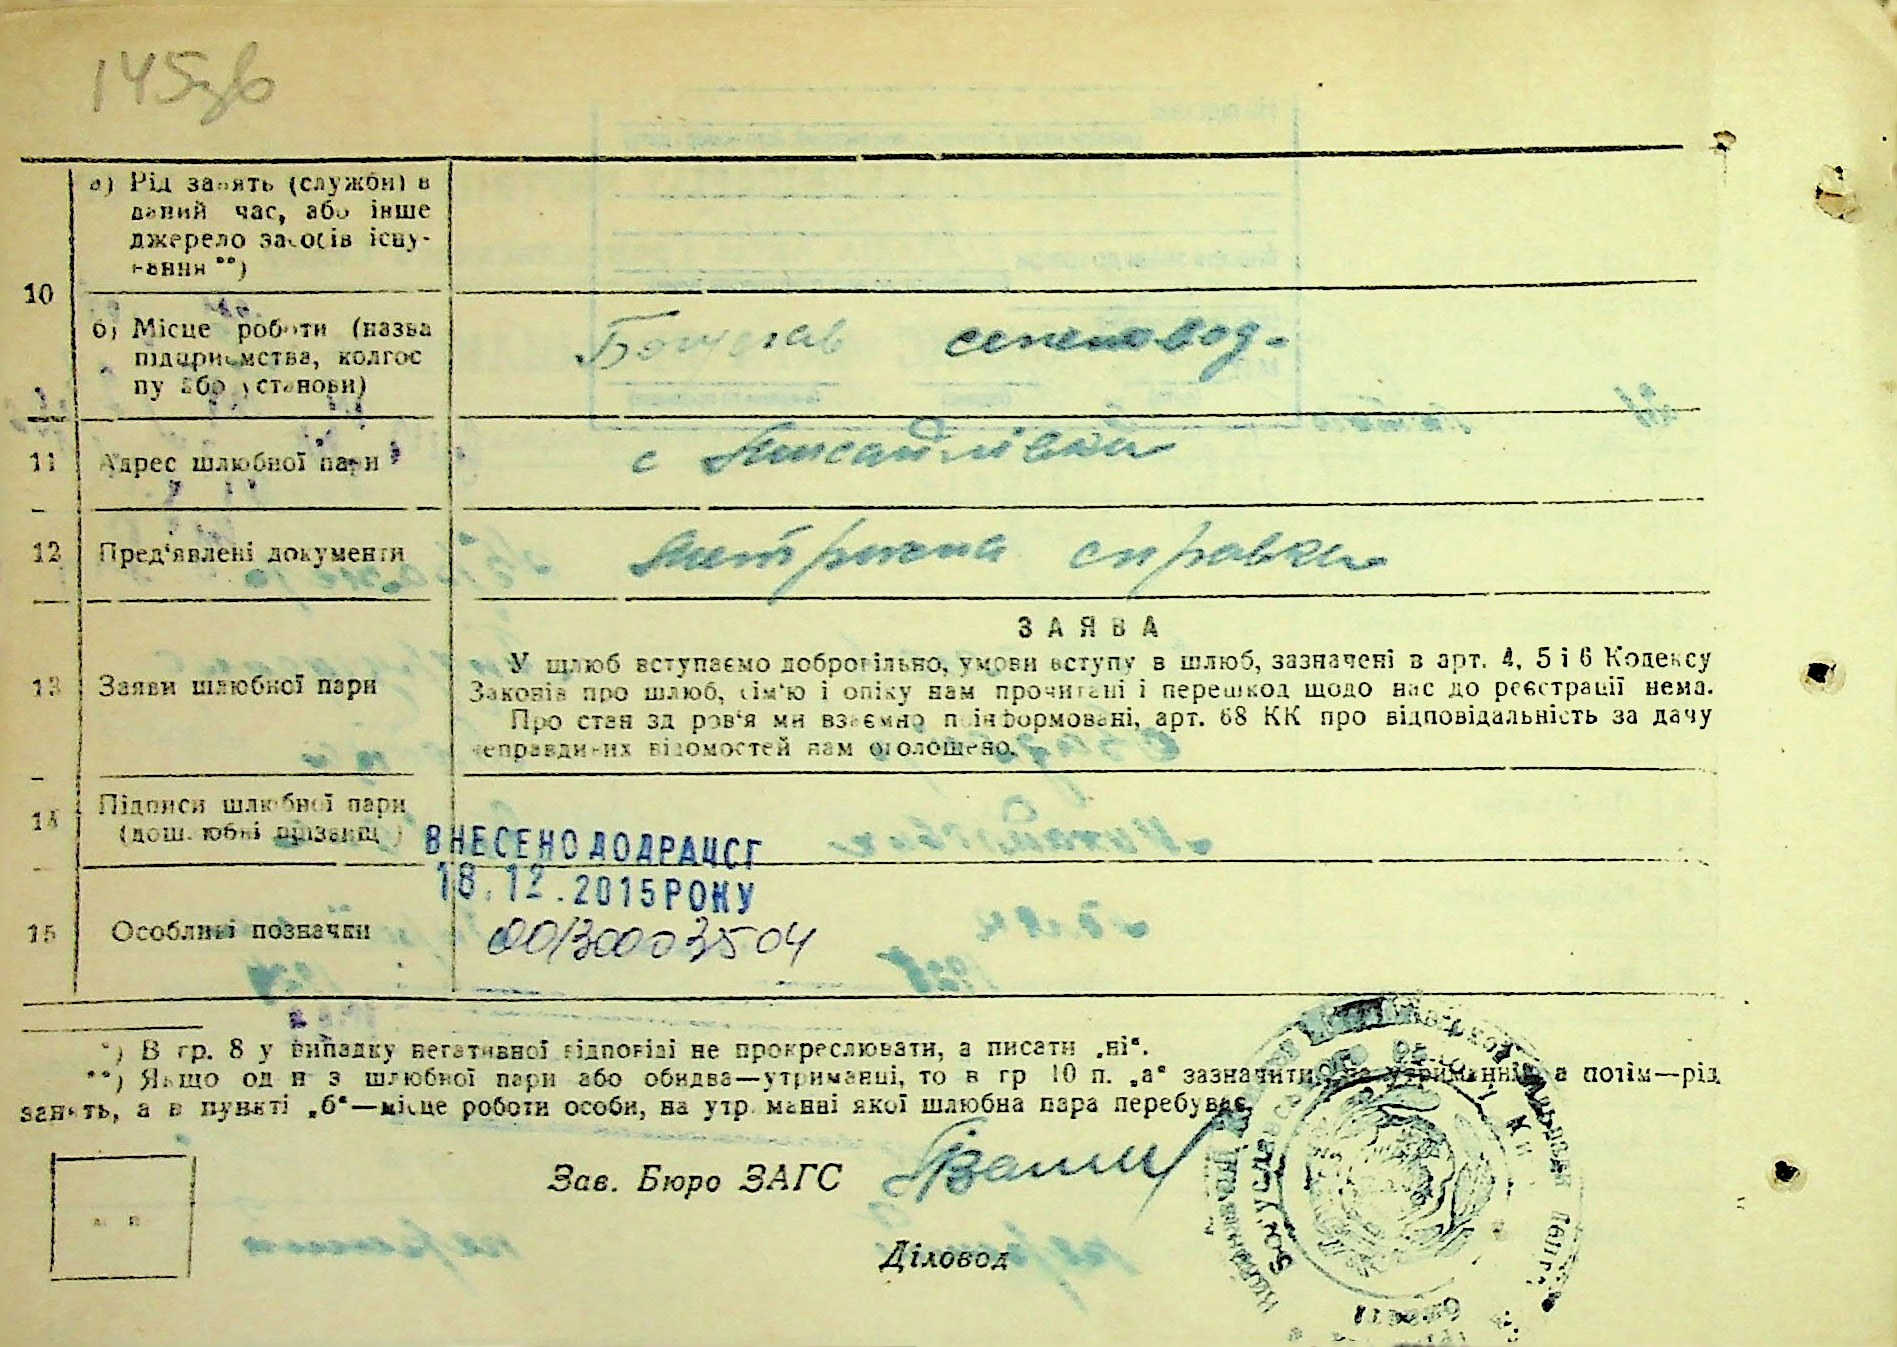 145зв
10
а) Рід занять (служби) в
даний час, або інше
джерело засобів існу-
вання **)
б) Місце роботи (назва
підприємства, колгос
пу або установи)
11
Адрес шлюбної пари
с
12
Пред'явлені документи
Метрична справка
13
Заяви шлюбної пари
ЗАЯВА
У шлюб вступаємо добровільно, умови вступу в шлюб, зазначені в арт. 4, 5 і 6 Кодексу
Законів про шлюб, сім'ю і опіку нам прочитані і перешкод щодо нас до реєстрації нема.
Про стан здоров'я ми взаємно поінформовані, арт. 68 КК про відповідальність за дачу
неправдивих відомостей нам оголошено.
14
Підписи шлюбної пари
(дошлюбні прізвищ )
ВНЕСЕНО ДО ДРАЦСГ
18.12.2015 РОКУ
15
Особливі позначки
00130003504
*) В гр. 8 у випадку негативної відповіді не прокреслювати, а писати „ні“.
**) Якщо один з шлюбної пари або обидва—утриманці, то в гр 10 п. „а“ зазначити на утриманні, а потім—рід
занять, а в пункті „б“—місце роботи особи, на утриманні якої шлюбна пара перебуває.
Зав. Бюро ЗАГС
Діловод